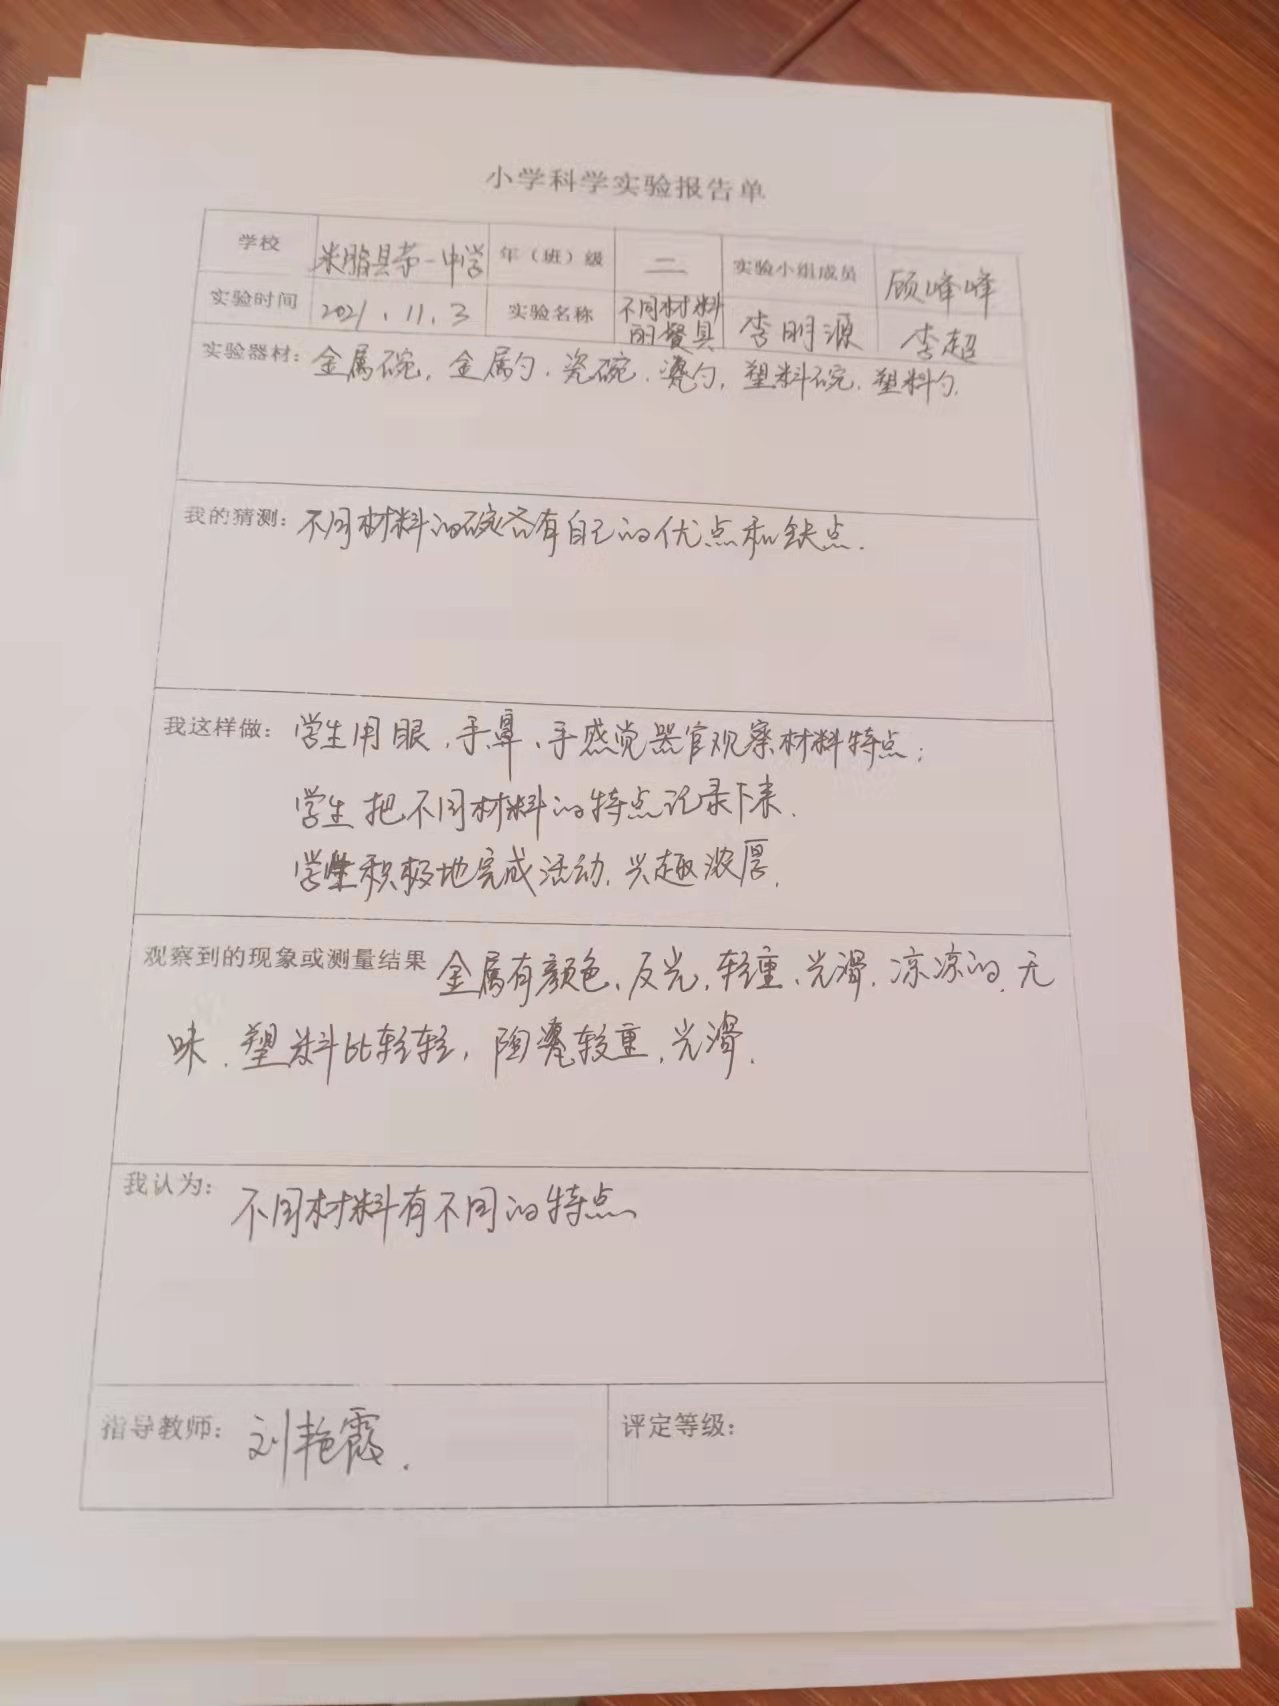 小学科学实验报告单
学校 米脂县第一中学 年（班）级 二 实验小组成员 顾峰峰
实验时间 2021.11.3 实验名称 不同材料的餐具 李明源 李超
实验器材：金属碗，金属勺、瓷碗、瓷勺，塑料碗、塑料勺.
我的猜测：不同材料的碗各有自己的优点和缺点.
我这样做：学生用眼、手鼻、手感觉器官观察材料特点；
学生把不同材料的特点记录下来.
学生积极地完成活动，兴趣浓厚.
观察到的现象或测量结果 金属有颜色、反光，轻重、光滑，凉凉的、无
味．塑料比轻轻，陶瓷较重，光滑.
我认为：不同材料有不同的特点、
指导教师：刘艳霞. 评定等级：